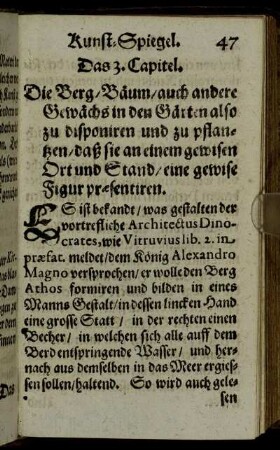 Kunst-Spiegel. 47
Das 3. Capitel.
Die Berg/Bäum/auch andere
Gewächs in den Gärten also
zu disponiren und zu pflan-
tzen/daß sie an einem gewisen
Ort und Stand/eine gewise
Figur præsentiren.
ES ist bekandt/was gestalten der
vortrefliche Architectus Dino-
crates, wie Vitruvius lib. 2. in
præfat. meldet/dem König Alexandro
Magno versprochen/er wolle den Berg
Athos formiren und bilden in eines
Manns Gestalt/in dessen lincken Hand
eine grosse Statt/in der rechten einen
Becher/in welchen sich alle auff dem
Berd entspringende Wasser/und her-
nach aus demselben in das Meer ergies-
sen sollen/haltend. So wird auch gele-
sen